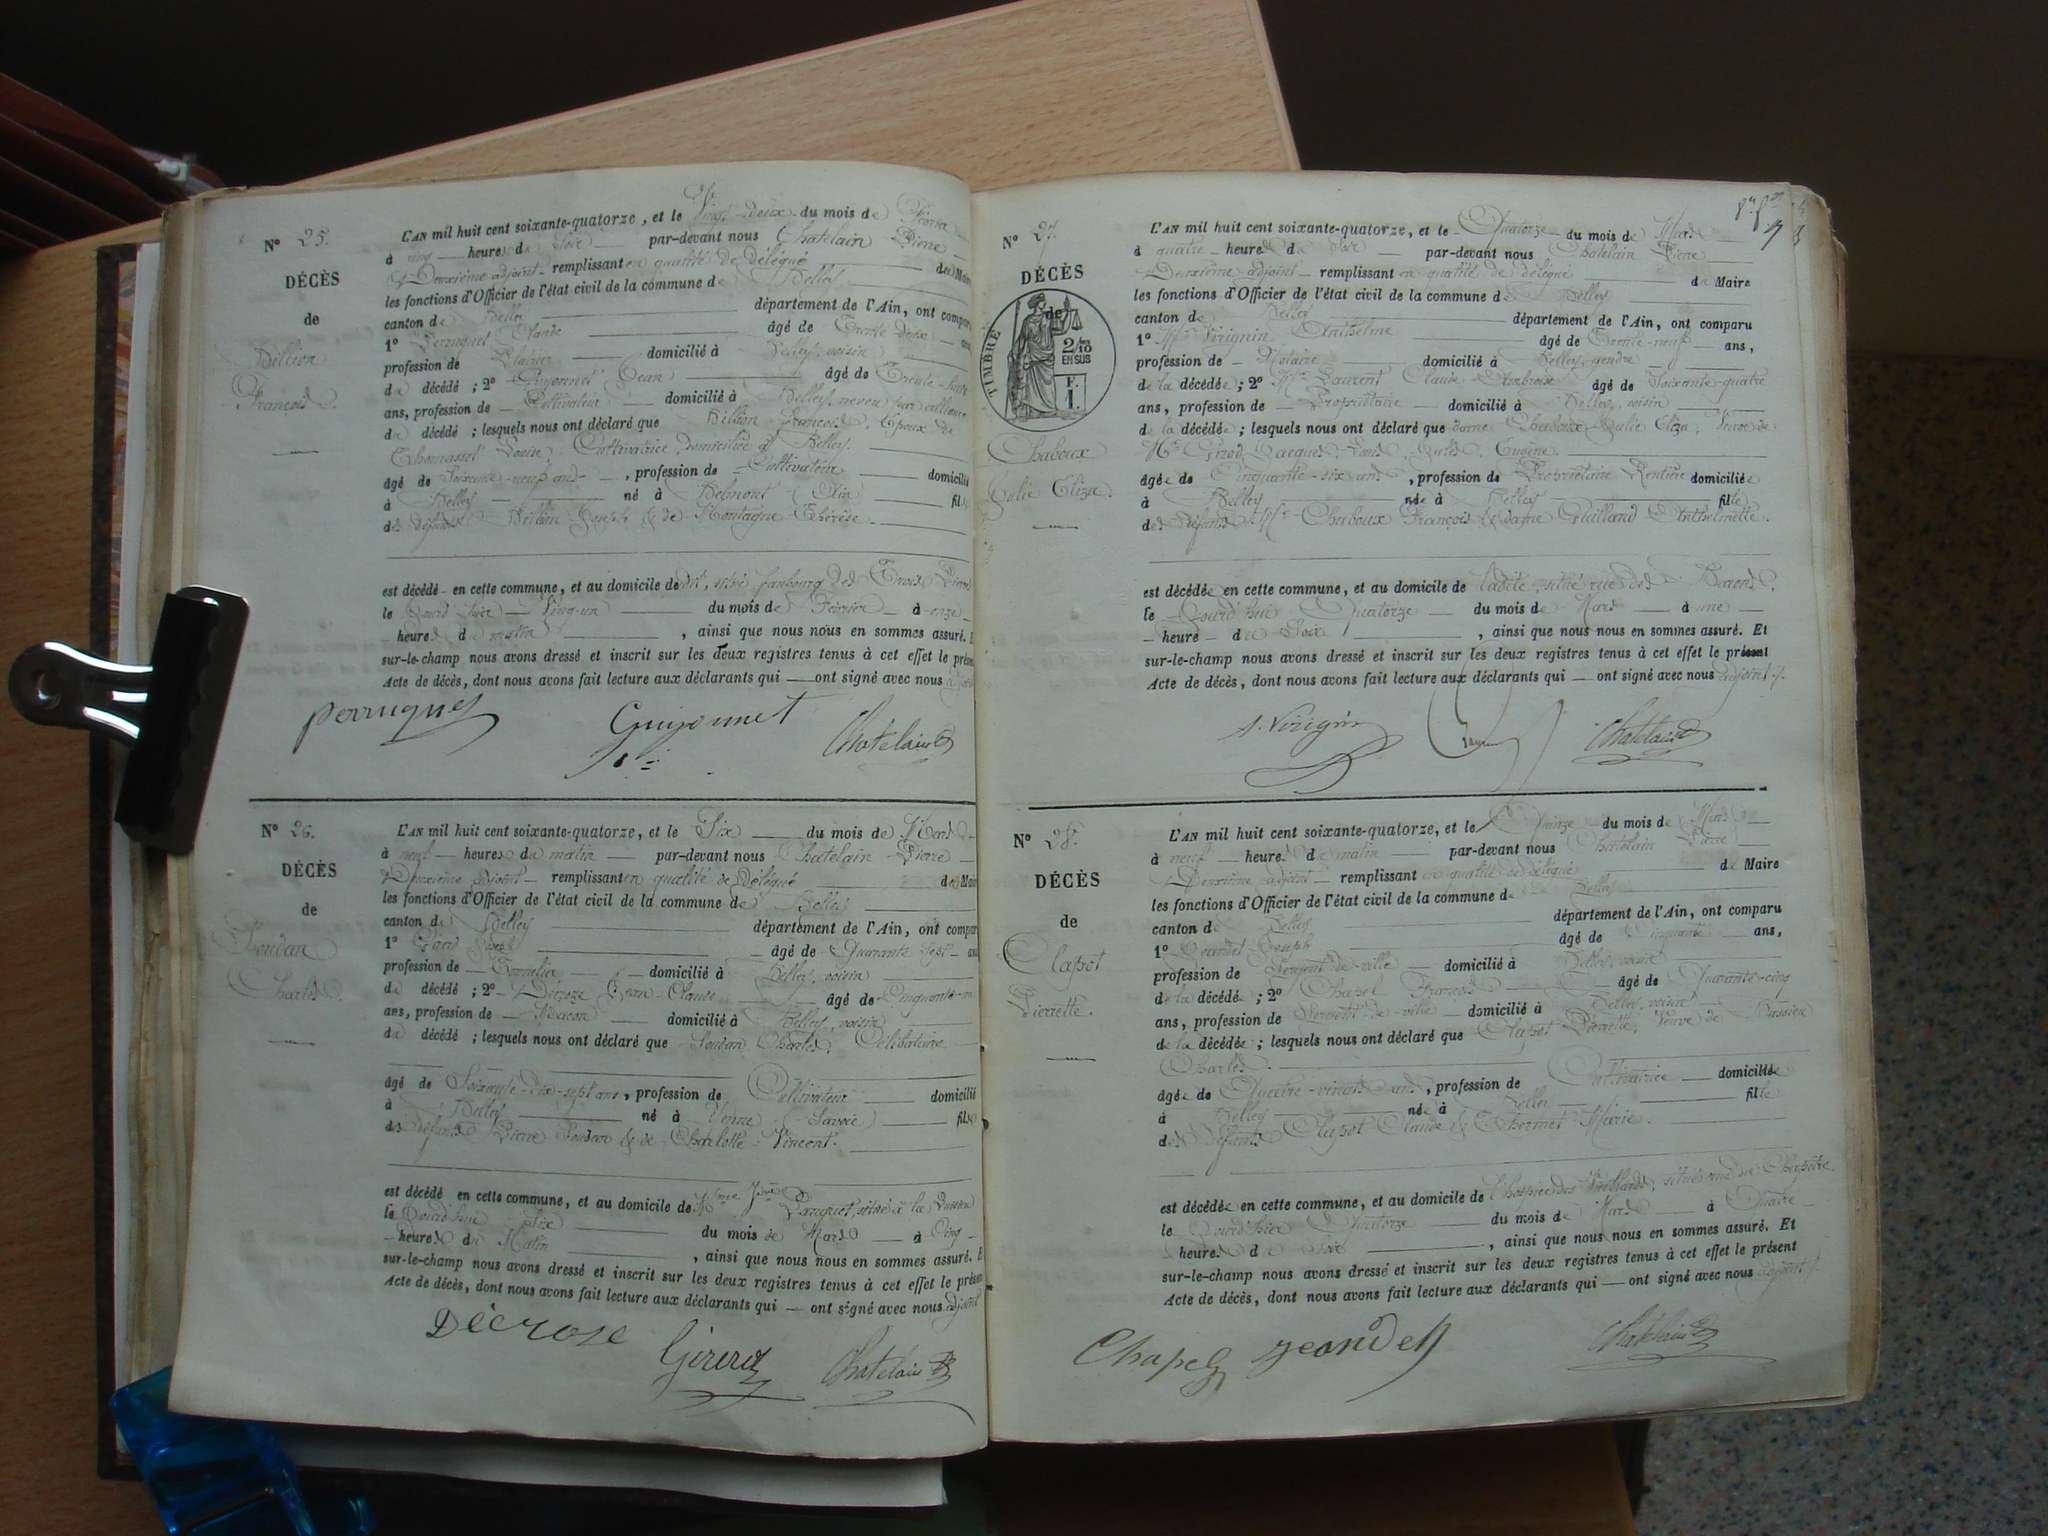 N° 25.
DÉCÈS
de
Billion
François.
L'AN mil huit cent soixante-quatorze, et le Vingt-deux du mois de Février
à cinq heures du soir par-devant nous Chatelain Pierre
Deuxième adjoint remplissant en qualité de délégué du Maire
les fonctions d'Officier de l'état civil de la commune de Belley
canton de Belley département de l'Ain, ont comparu
1° Perruquet Claude âgé de Trente deux ans
profession de domicilié à Belley, voisin
du décédé; 2° Guyonnet Jean âgé de Trente-huit
ans, profession de Cultivateur domicilié à Belley, neveu par alliance
du décédé; lesquels nous ont déclaré que Billion François, Epoux de
Thomasset Louise, Cultivatrice, domiciliée à Belley.
âgé de Soixante-neuf ans, profession de Cultivateur domicilié
à Belley né à Belmont (Ain) fils
des défunts Billion Joseph & de Montagne Thérèse.
est décédé en cette commune, et au domicile de dit, situé faubourg des Trois Pierres
le jourd'hier Vingt-un du mois de Février à onze
heures du matin, ainsi que nous nous en sommes assuré. E
sur-le-champ nous avons dressé et inscrit sur les deux registres tenus à cet effet le présen
Acte de décès, dont nous avons fait lecture aux déclarants qui ont signé avec nous adjoint
Perruquet Guyonnet Chatelain
N° 26.
DÉCÈS
de
Soudan
Charles.
L'AN mil huit cent soixante-quatorze, et le Six du mois de Mars
à neuf heures du matin par-devant nous Chatelain Pierre
Deuxième adjoint remplissant en qualité de délégué du Maire
les fonctions d'Officier de l'état civil de la commune de Belley
canton de Belley département de l'Ain, ont compar
1° Joseph âgé de Quarante sept ans
profession de Tonnelier domicilié à Belley, voisin
du décédé; 2° Décroze Jean-Claude âgé de Cinquante-un
ans, profession de Maçon domicilié à Belley, voisin
du décédé; lesquels nous ont déclaré que Soudan Charles, Célibataire
âgé de Soixante-dix-sept ans, profession de Cultivateur domicilié
à Belley né à Yenne (Savoie) fils
des défunts Pierre Soudan & de Charlotte Vincent.
est décédé en cette commune, et au domicile de situé à la
le jourd'hui Six du mois de Mars à cinq
heures du Matin, ainsi que nous nous en sommes assuré. E
sur-le-champ nous avons dressé et inscrit sur les deux registres tenus à cet effet le présen
Acte de décès, dont nous avons fait lecture aux déclarants qui ont signé avec nous adjoint
Décroze Girerd Chatelain
N° 27.
DÉCÈS
de
TIMBRE
2/10
EN SUS
F.
1.
Chaboux
Julie Eliza.
L'AN mil huit cent soixante-quatorze, et le Quatorze du mois de Mars
à quatre heures du soir par-devant nous Chatelain Pierre
Deuxième adjoint remplissant en qualité de délégué du Maire
les fonctions d'Officier de l'état civil de la commune de Belley
canton de Belley département de l'Ain, ont comparu
1° Mr. Virignin Anthelme âgé de Trente-neuf ans,
profession de Notaire domicilié à Belley, gendre
de la décédée; 2° Mr. Laurent Claude Ambroise âgé de Soixante-quatre
ans, profession de Propriétaire domicilié à Belley, voisin
de la décédée; lesquels nous ont déclaré que dame Chaboux Julie Eliza, Veuve de
Mr. Girod Jacques, Louis, Jules, Eugène.
âgée de Cinquante-six ans, profession de Propriétaire Rentière domiciliée
à Belley née à Belley fille
des défunts Mr. Chaboux François & dame Guilland Anthelmette.
est décédée en cette commune, et au domicile de ladite, situé rue des Barons.
le jourd'hui Quatorze du mois de Mars à une
heure du Soir, ainsi que nous nous en sommes assuré. Et
sur-le-champ nous avons dressé et inscrit sur les deux registres tenus à cet effet le présent
Acte de décès, dont nous avons fait lecture aux déclarants qui ont signé avec nous adjoint
A. Virignin Chatelain
N° 28.
DÉCÈS
de
Clapot
Pierrette.
L'AN mil huit cent soixante-quatorze, et le Quinze du mois de Mars
à neuf heures du matin par-devant nous Chatelain Pierre
Deuxième adjoint remplissant en qualité de délégué du Maire
les fonctions d'Officier de l'état civil de la commune de Belley
canton de Belley département de l'Ain, ont comparu
1° Jeandet Joseph âgé de Cinquante ans,
profession de Sergent de ville domicilié à Belley, voisin
de la décédée; 2° Chapel François âgé de Quarante-cinq
ans, profession de Sergent de ville domicilié à Belley, voisin
de la décédée; lesquels nous ont déclaré que Clapot Pierrette, Veuve de
Charles.
âgée de Quatre-vingts ans, profession de Cultivatrice domiciliée
à Belley née à Belley fille
des défunts Clapot Claude & Thermet Marie.
est décédée en cette commune, et au domicile de l'hospice des Vieillards, situé rue du Chapitre
le jourd'hier Quatorze du mois de Mars à Quatre
heures du soir, ainsi que nous nous en sommes assuré. Et
sur-le-champ nous avons dressé et inscrit sur les deux registres tenus à cet effet le présent
Acte de décès, dont nous avons fait lecture aux déclarants qui ont signé avec nous adjoint
Chapel Jeandet Chatelain